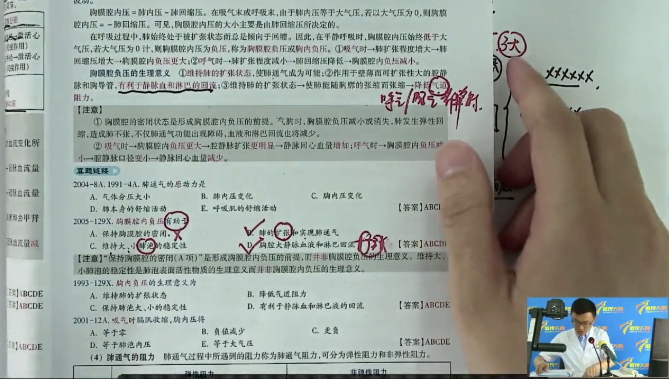 胸膜腔内压=肺内压-肺回缩压。在吸气末或呼气末,由于肺内压等于大气压,若以大气压为0,则胸膜
腔内压=-肺回缩压。可见,胸膜腔内压的大小主要是由肺回缩压所决定的。
在呼吸过程中,肺始终处于被扩张状态而总是倾向于回缩。因此,在平静呼吸时,胸膜腔内压始终低于大
气压,若大气压为0计,则胸膜腔内压为负压,称为胸膜腔负压或胸内负压。①吸气时→肺扩张程度增大→肺
回缩压增大→胸膜腔内负压更大;②呼气时→肺扩张程度减小→肺回缩压降低→胸膜腔内负压减小。
胸膜腔负压的生理意义 ①维持肺的扩张状态,使肺通气成为可能;②作用于壁薄而可扩张性大的腔静
脉和胸导管,有利于静脉血和淋巴的回流;③维持肺的扩张状态→使肺能随胸廓的张缩而张缩→降低气道
阻力。
【注意】
① 胸膜腔的密闭状态是形成胸膜腔内负压的前提。气胸时,胸膜腔负压减小或消失,肺发生弹性回
缩,造成肺不张,不仅肺通气功能出现障碍,血液和淋巴回流也将减少。
② 吸气时→胸膜腔内负压更大→腔静脉扩张更明显→静脉回心血量增加;呼气时→胸膜腔内负压减
小→腔静脉口径变小→静脉回心血量减少。
真题链接
2004-8A.1991-4A.肺通气的原动力是
A. 气体分压大小 B. 肺内压变化 C. 胸内压变化
D. 肺本身的舒缩活动 E. 呼吸肌的舒缩活动 【答案】ABCDE
2005-129X.胸膜腔内负压有助于
A. 保持胸膜腔的密闭 B. 肺的扩张和实现肺通气
C. 维持大、小肺泡的稳定性 D. 胸腔大静脉血液和淋巴回流 【答案】ABCD
【注意】“保持胸膜腔的密闭(A项)”是形成胸膜腔内负压的前提,而并非胸膜腔负压的生理意义。维持大、
小肺泡的稳定性是肺泡表面活性物质的生理意义而并非胸膜腔内负压的生理意义。
1993-129X.胸内负压的生理意义为
A. 维持肺的扩张状态 B. 降低气道阻力
C. 保持肺泡大、小的稳定性 D. 有利于静脉血和淋巴液的回流 【答案】ABCD
2001-12A.吸气时膈肌收缩,胸内压将
A. 等于零 B. 负值减少 C. 更负
D. 等于肺泡内压 E. 等于大气压 【答案】ABCDE
(4)肺通气的阻力 肺通气过程中所遇到的阻力称为肺通气阻力,可分为弹性阻力和非弹性阻力。
弹性阻力 非弹性阻力